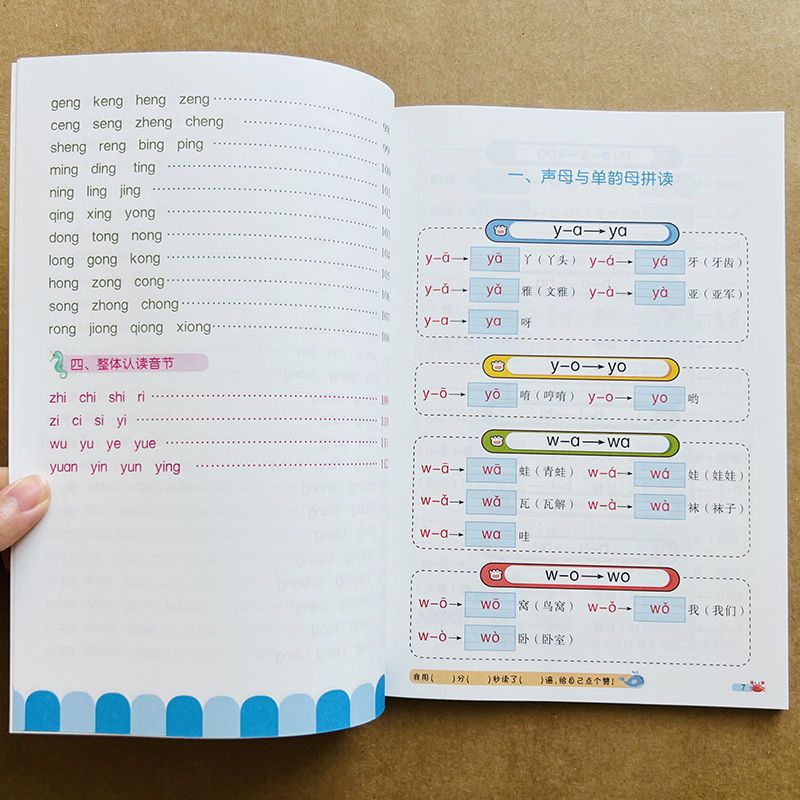 geng keng heng zeng
ceng seng zheng cheng 98
sheng reng bing ping 99
ming ding ting 100
ning ling jing 101
qing xing yong 102
dong tong nong 103
long gong kong 104
hong zong cong 105
song zhong chong 106
rong jiong qiong xiong 108
四、整体认读音节
zhi chi shi ri 109
zi ci si yi 110
wu yu ye yue 111
yuan yin yun ying 112
一、声母与单韵母拼读
y-a→ya
y-ā→ yā 丫（丫头） y-á→ yá 牙（牙齿）
y-ǎ→ yǎ 雅（文雅） y-à→ yà 亚（亚军）
y-a→ ya 呀
y-o→yo
y-ō→ yō 唷（哼唷） y-o→ yo 哟
w-a→wa
w-ā→ wā 蛙（青蛙） w-á→ wá 娃（娃娃）
w-ǎ→ wǎ 瓦（瓦解） w-à→ wà 袜（袜子）
w-a→ wa 哇
w-o→wo
w-ō→ wō 窝（鸟窝） w-ǒ→ wǒ 我（我们）
w-ò→ wò 卧（卧室）
我用( )分( )秒读了( )遍,给自己点个赞!
7